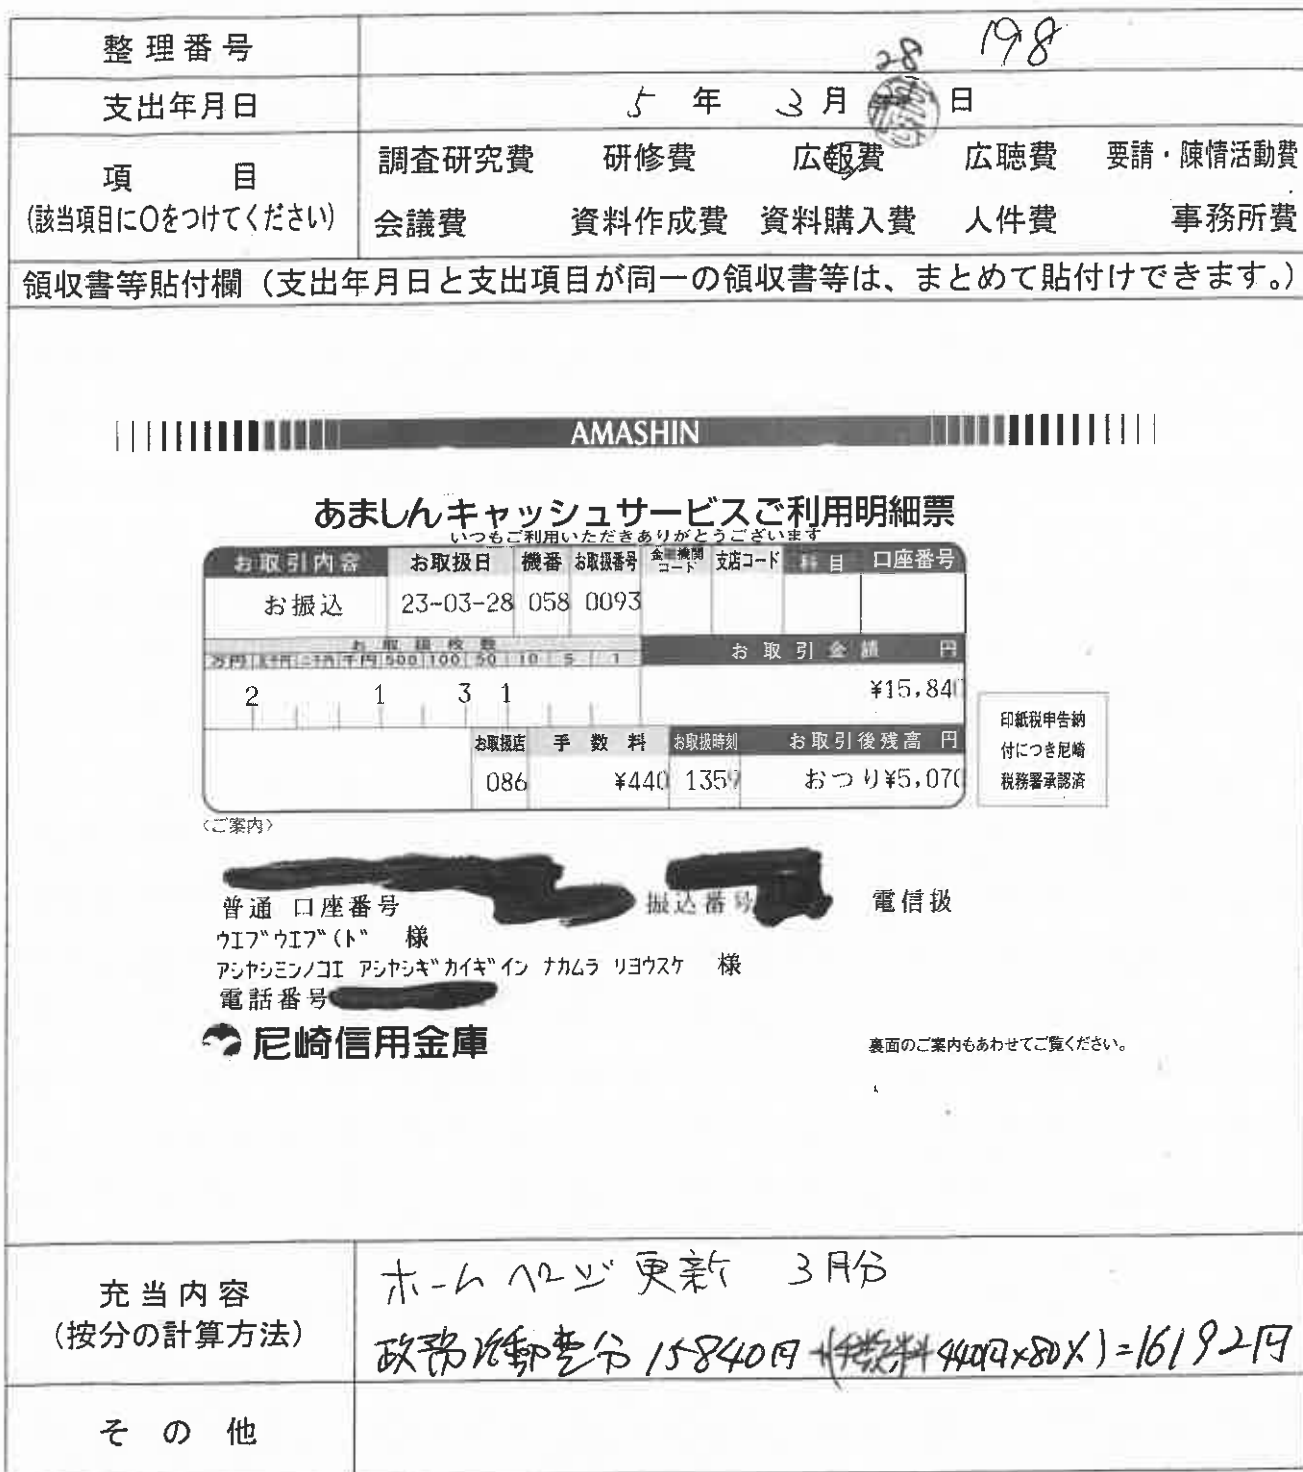 整理番号 198
28
支出年月日 5 年 3 月 日
項 目
(該当項目に○をつけてください)
調査研究費 研修費 広報費 広聴費 要請・陳情活動費
会議費 資料作成費 資料購入費 人件費 事務所費
領収書等貼付欄(支出年月日と支出項目が同一の領収書等は、まとめて貼付けできます。)
AMASHIN
あましんキャッシュサービスご利用明細票
いつもご利用いただきありがとうございます
お取引内容 お取扱日 機番 お取扱番号 金融機関コード 支店コード 科目 口座番号
お振込 23-03-28 058 0093
お取扱枚数 お取引金額 円
万円 五千円 二千円 千円 500 100 50 10 5 1
2 1 3 1 ¥15,840
お取扱店 手数料 お取扱時刻 お取引後残高 円
086 ¥440 1359 おつり¥5,070
印紙税申告納
付につき尼崎
税務署承認済
〈ご案内〉
普通 口座番号 振込番号 電信扱
ウエブウエブ(ド 様
アシヤシミンノコエ アシヤシギカイギイン ナカムラ リヨウスケ 様
電話番号
尼崎信用金庫
裏面のご案内もあわせてご覧ください。
充当内容
(按分の計算方法)
ホームページ更新 3月分
政務活動費分 15840円+(手数料440円×80%)=16192円
その他